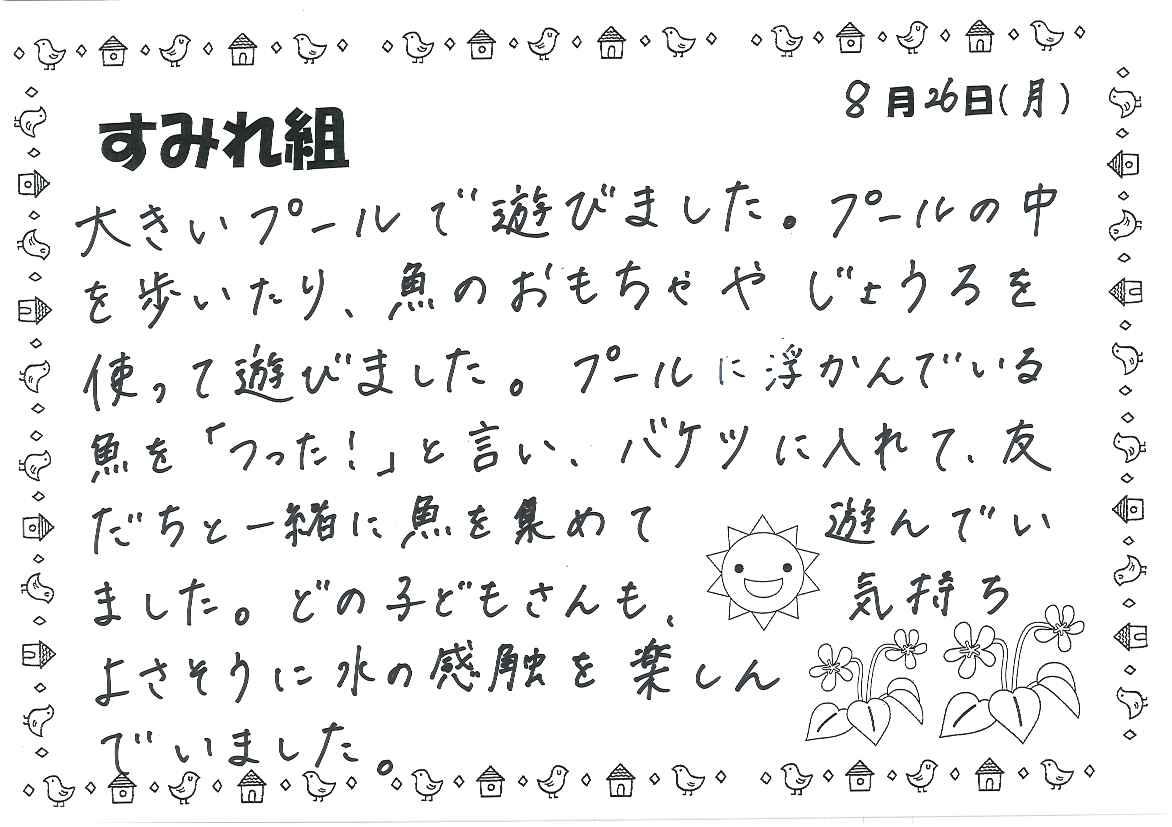 8月26日(月)
すみれ組
大きいプールで遊びました。プールの中
を歩いたり、魚のおもちゃやじょうろを
使って遊びました。プールに浮かんでいる
魚を「つった!」と言い、バケツに入れて、友
だちと一緒に魚を集めて遊んでい
ました。どの子どもさんも、気持ち
よさそうに水の感触を楽しん
でいました。